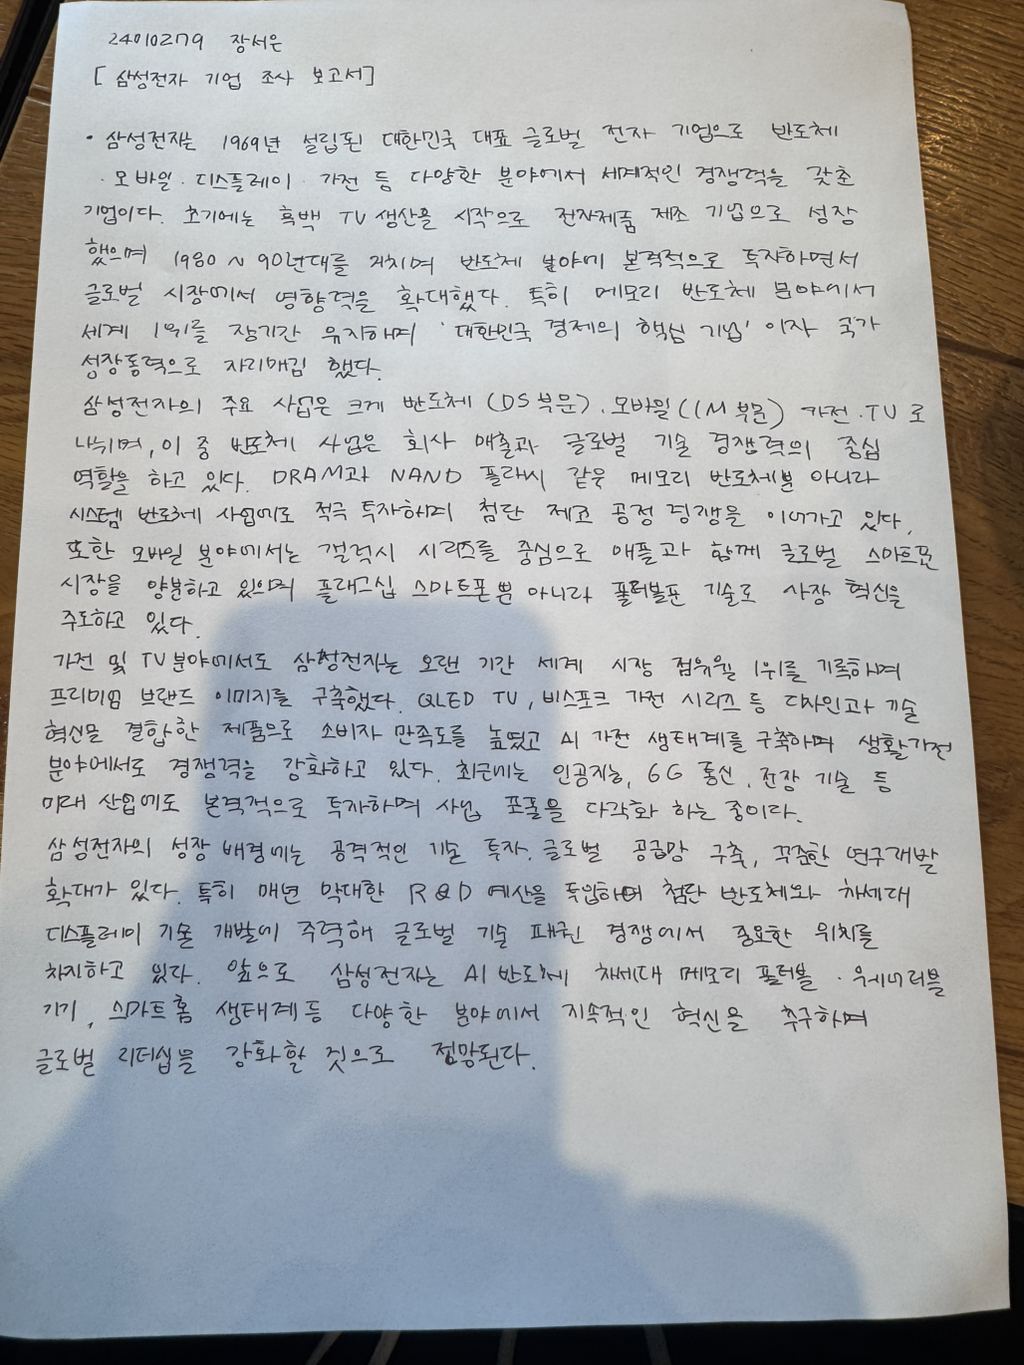 24010279 장서은
[ 삼성전자 기업 조사 보고서]
• 삼성전자는 1969년 설립된 대한민국 대표 글로벌 전자 기업으로 반도체
· 모바일 · 디스플레이 · 가전 등 다양한 분야에서 세계적인 경쟁력을 갖춘
기업이다. 초기에는 흑백 TV 생산을 시작으로 전자제품 제조 기업으로 성장
했으며 1980 ~ 90년대를 거치며 반도체 분야에 본격적으로 투자하면서
글로벌 시장에서 영향력을 확대했다. 특히 메모리 반도체 분야에서
세계 1위를 장기간 유지하며 '대한민국 경제의 핵심 기업' 이자 국가
성장동력으로 자리매김 했다.
삼성전자의 주요 사업은 크게 반도체 (DS 부문). 모바일 (IM 부문) 가전 · TV 로
나뉘며, 이 중 반도체 사업은 회사 매출과 글로벌 기술 경쟁력의 중심
역할을 하고 있다. DRAM과 NAND 플래시 같은 메모리 반도체뿐 아니라
시스템 반도체 사업에도 적극 투자하며 첨단 제조 공정 경쟁을 이어가고 있다.
또한 모바일 분야에서는 갤럭시 시리즈를 중심으로 애플과 함께 글로벌 스마트폰
시장을 양분하고 있으며 플래그십 스마트폰뿐 아니라 폴더블폰 기술로 시장 혁신을
주도하고 있다.
가전 및 TV 분야에서도 삼성전자는 오랜 기간 세계 시장 점유율 1위를 기록하며
프리미엄 브랜드 이미지를 구축했다. QLED TV, 비스포크 가전 시리즈 등 디자인과 기술
혁신을 결합한 제품으로 소비자 만족도를 높였고 AI 가전 생태계를 구축하며 생활가전
분야에서도 경쟁력을 강화하고 있다. 최근에는 인공지능, 6G 통신, 전장 기술 등
미래 산업에도 본격적으로 투자하며 사업 포폴을 다각화 하는 중이다.
삼성전자의 성장 배경에는 공격적인 기술 투자. 글로벌 공급망 구축, 꾸준한 연구개발
확대가 있다. 특히 매년 막대한 R&D 예산을 투입하며 첨단 반도체와 차세대
디스플레이 기술 개발에 주력해 글로벌 기술 패권 경쟁에서 중요한 위치를
차지하고 있다. 앞으로 삼성전자는 AI 반도체 차세대 메모리 폴더블 · 웨어러블
기기, 스마트홈 생태계 등 다양한 분야에서 지속적인 혁신을 추구하며
글로벌 리더십을 강화할 것으로 전망된다.